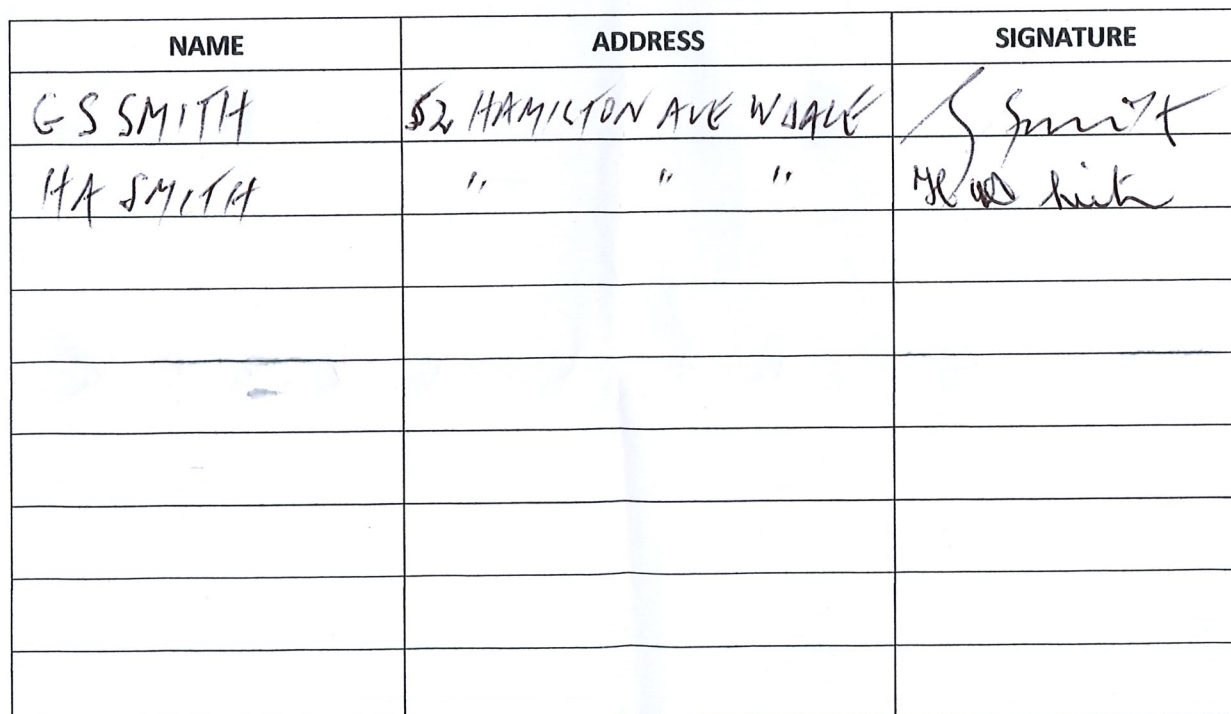 NAME ADDRESS SIGNATURE
G S SMITH 52 HAMILTON AVE WDALE G Smith
HA SMITH " " "